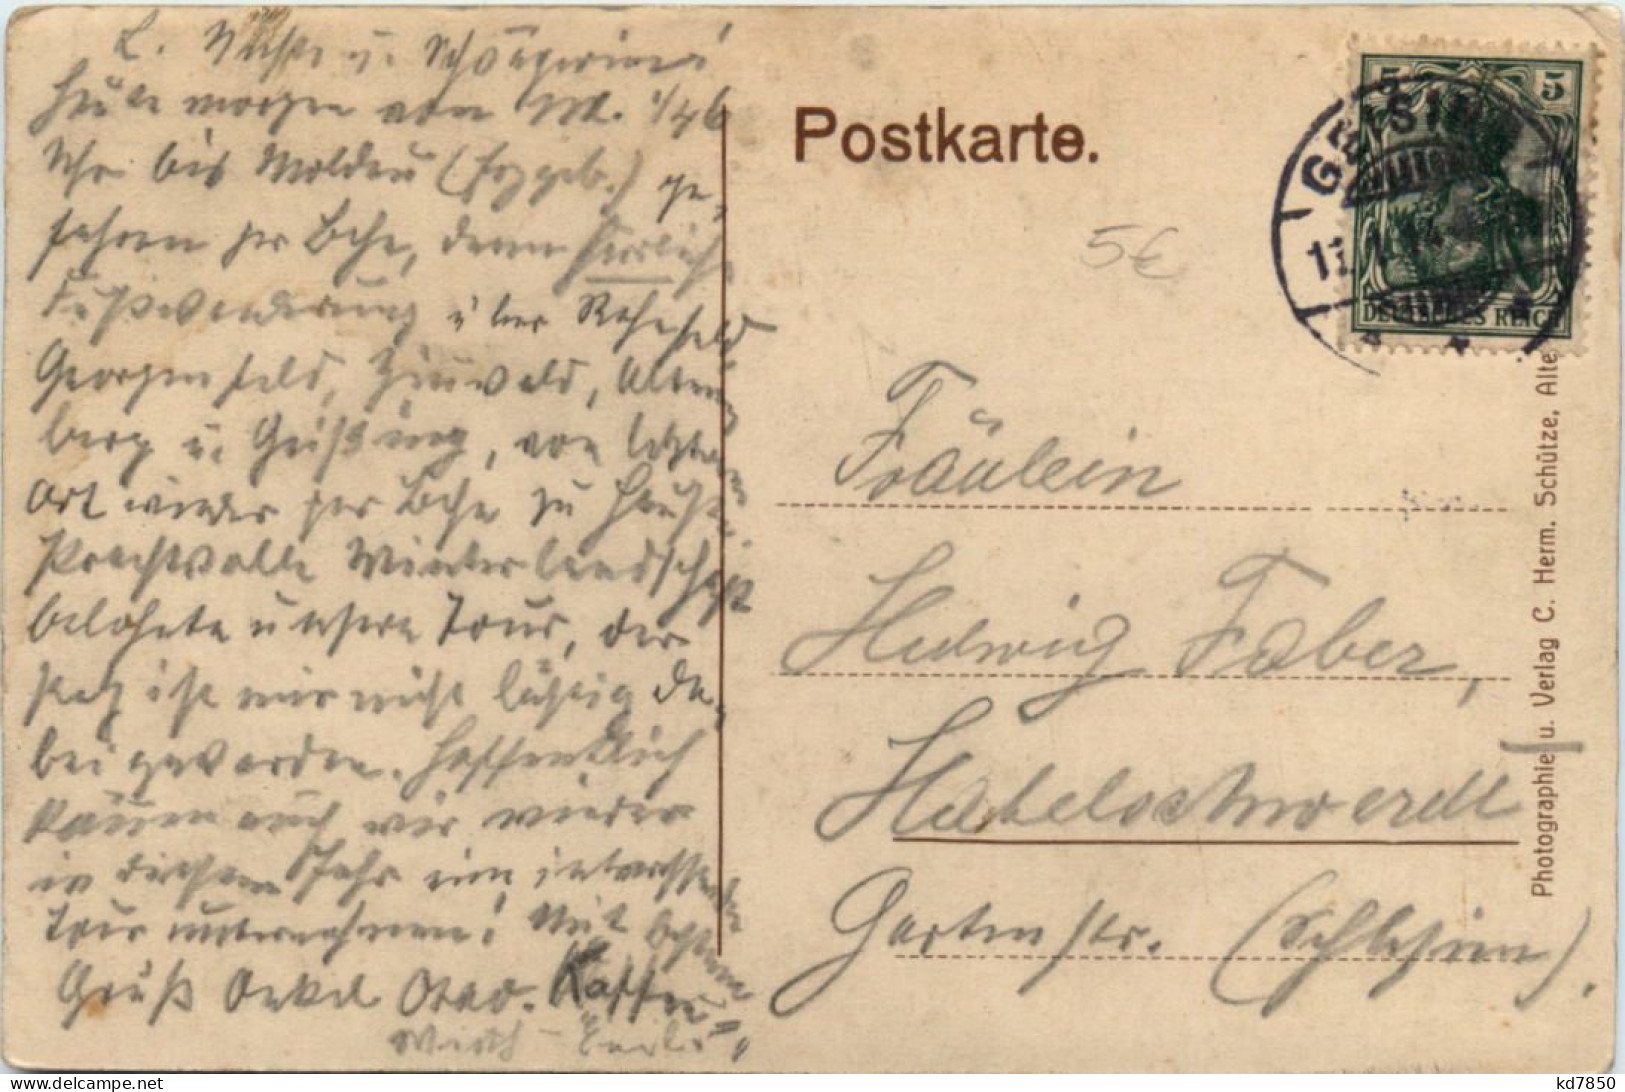 L. Nichte u. Schwägerin!
Heute morgen von M. 1/4 6
Uhr bis Moldau (Erzgeb.) ge-
fahren per Bahn, dann herrliche
Fußwanderung über Rehefeld,
Georgenfeld, Zinnwald, Alten-
berg u. Geißing, von letzterem
Ort wieder per Bahn zu Hause.
Prachtvolle Winterlandschaft
belohnte unsere Tour, der
ist mir nicht lästig da-
bei geworden. Hoffentlich
können auch wir wieder
in diesem Jahr eine interessante
Tour unternehmen! Mit bestem
Gruß Onkel
Postkarte.
5€
5 5
DEUTSCHES REICH
GEISING
Fräulein
Hedwig Faber,
Habelschwerdt
Gartenstr. (Schlesien).
Photographie u. Verlag C. Herm. Schütze, Alte
delcampe.net
kd7850